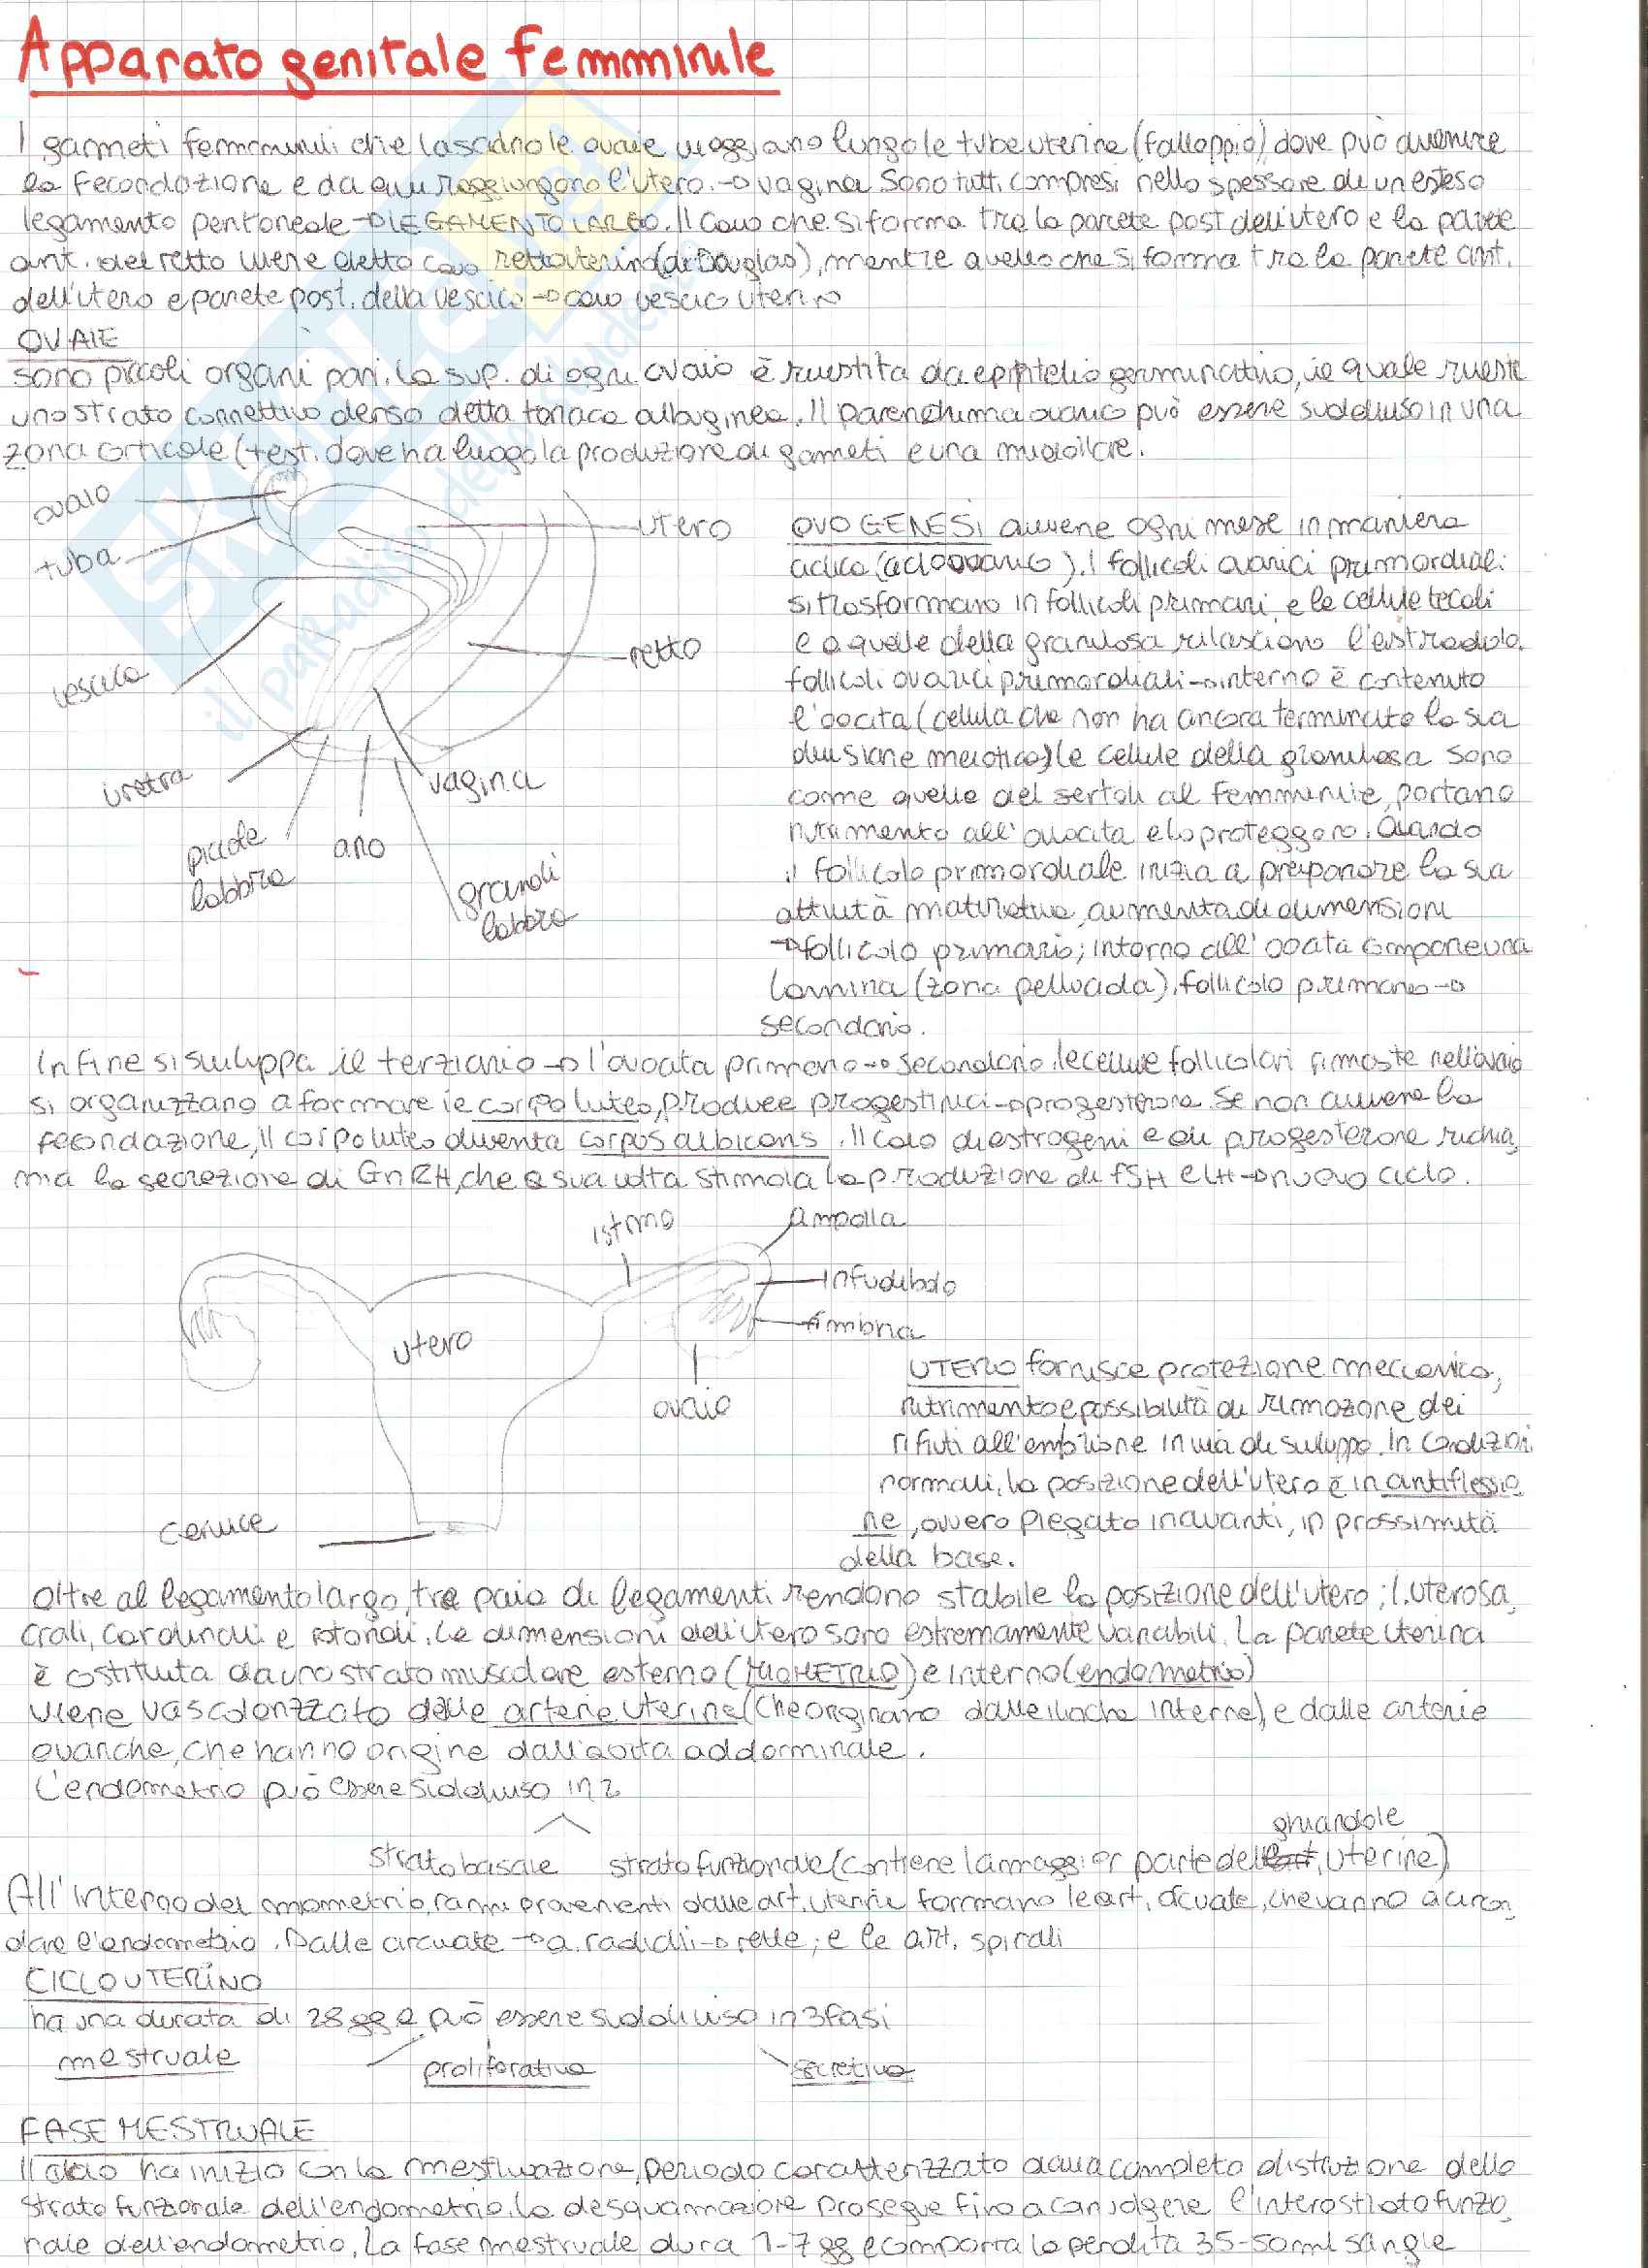 Apparato genitale femminile
I gameti femminili che lasciano le ovaie viaggiano lungo le tube uterine (falloppio) dove può avvenire
la fecondazione e da qui raggiungono l'utero. → vagina. Sono tutti compresi nello spessore di un esteso
legamento peritoneale → LEGAMENTO LARGO. Il cavo che si forma tra la parete post dell'utero e la parete
ant. del retto viene detto cavo rettouterino (di Douglas), mentre quello che si forma tra la parete ant.
dell'utero e parete post. della vescica → cavo vescico uterino
OVAIE
Sono piccoli organi pari. La sup. di ogni ovaio è rivestita da epitelio germinativo, il quale riveste
uno strato connettivo denso detta tonaca albuginea. Il parenchima ovarico può essere suddiviso in una
zona corticale (+ est. dove ha luogo la produzione di gameti e una midollare.
ovaio
tuba
utero
retto
vescica
uretra
vagina
piccole
labbra
ano
grandi
labbra
OVOGENESI avviene ogni mese in maniera
ciclica (ciclo ovarico). I follicoli ovarici primordiali
si trasformano in follicoli primari, e le cellule tecali
e quelle della granulosa rilasciano l'estradiolo.
follicoli ovarici primordiali → interno è contenuto
l'oocita (cellula che non ha ancora terminato la sua
divisione meiotica) le cellule della granulosa sono
come quelle del sertoli al femminile, portano
nutrimento all'ovocita e lo proteggono. Quando
il follicolo primordiale inizia a preparare la sua
attività maturativa, aumenta di dimensioni
→ follicolo primario; intorno all'oocita compare una
lamina (zona pellucida), follicolo primario →
secondario.
Infine si sviluppa il terziario → l'ovocita primario → secondario. le cellule follicolari rimaste nell'ovaio
si organizzano a formare il corpo luteo, produce progestinici → progesterone. Se non avviene la
fecondazione, il corpo luteo diventa corpus albicans. Il calo di estrogeni e di progesterone richia
ma la secrezione di GnRH, che a sua volta stimola la produzione di FSH e LH → nuovo ciclo.
istmo
Ampolla
infudibolo
fimbria
utero
ovaio
cervice
UTERO fornisce protezione meccanica,
nutrimento e possibilità di rimozione dei
rifiuti all'embrione in via di sviluppo. In condizioni
normali, la posizione dell'utero è in antiflessio
ne, ovvero piegato in avanti, in prossimità
della base.
Oltre al legamento largo, tre paia di legamenti rendono stabile la posizione dell'utero; l. uterosa,
crali, cardinali e rotondi. Le dimensioni dell'utero sono estremamente variabili. La parete uterina
è costituita da uno strato muscolare esterno (MIOMETRIO) e interno (endometrio)
Viene vascolarizzato dalle arterie uterine (che originano dalle iliache interne), e dalle arterie
ovariche, che hanno origine dall'aorta addominale.
L'endometrio può essere suddiviso in 2
strato basale strato funzionale (contiene la maggior parte delle ghiandole uterine)
All'interno del miometrio, rami provenienti dalle art. uterine formano le art. arcuate, che vanno a circon,
dare l'endometrio. Dalle arcuate → a. radiali → rette; e le art. spirali
CICLO UTERINO
ha una durata di 28 gg e può essere suddiviso in 3 fasi
mestruale proliferativa secretiva
FASE MESTRUALE
Il ciclo ha inizio con la mestruazione, periodo caratterizzato dalla completa distruzione dello
strato funzionale dell'endometrio. La desquamazione prosegue fino a coinvolgere l'intero strato funzio,
nale dell'endometrio. La fase mestruale dura 1-7 gg e comporta la perdita 35-50 ml sangue